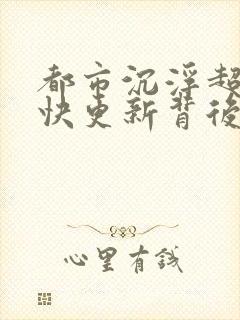 都市沉浮超
快更新背後
心里有錢